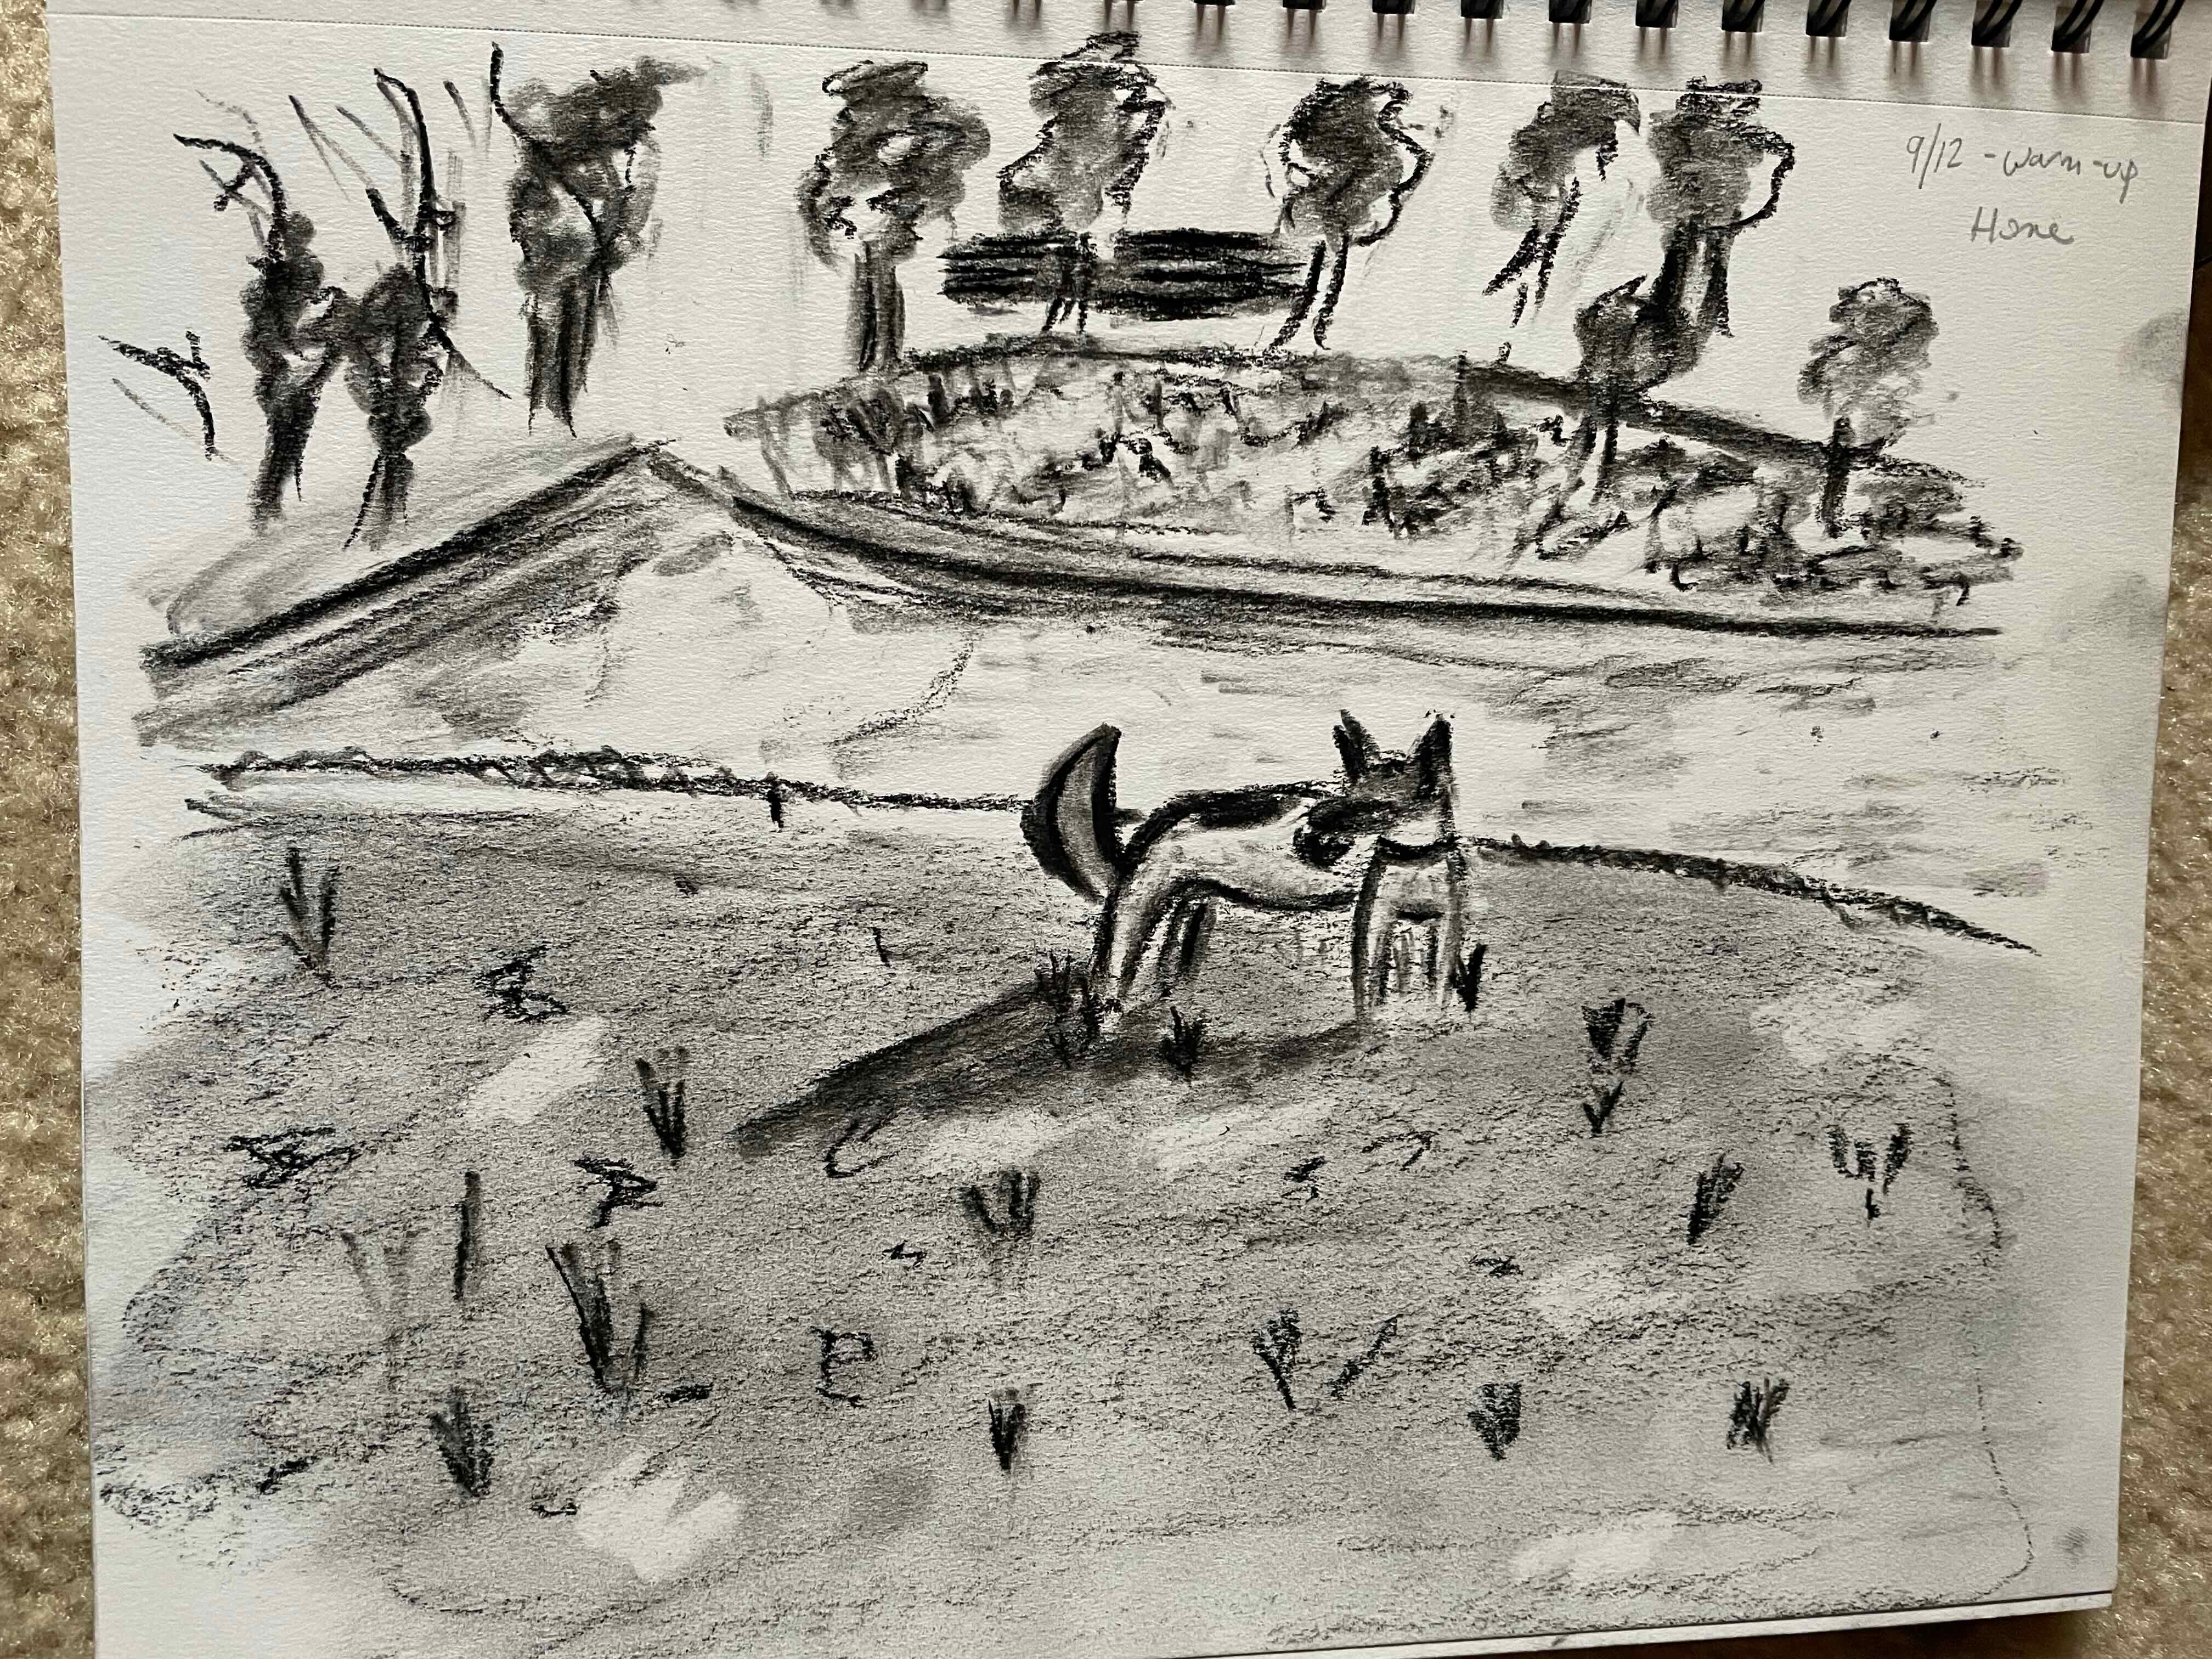 9/12 - warm-up
Home